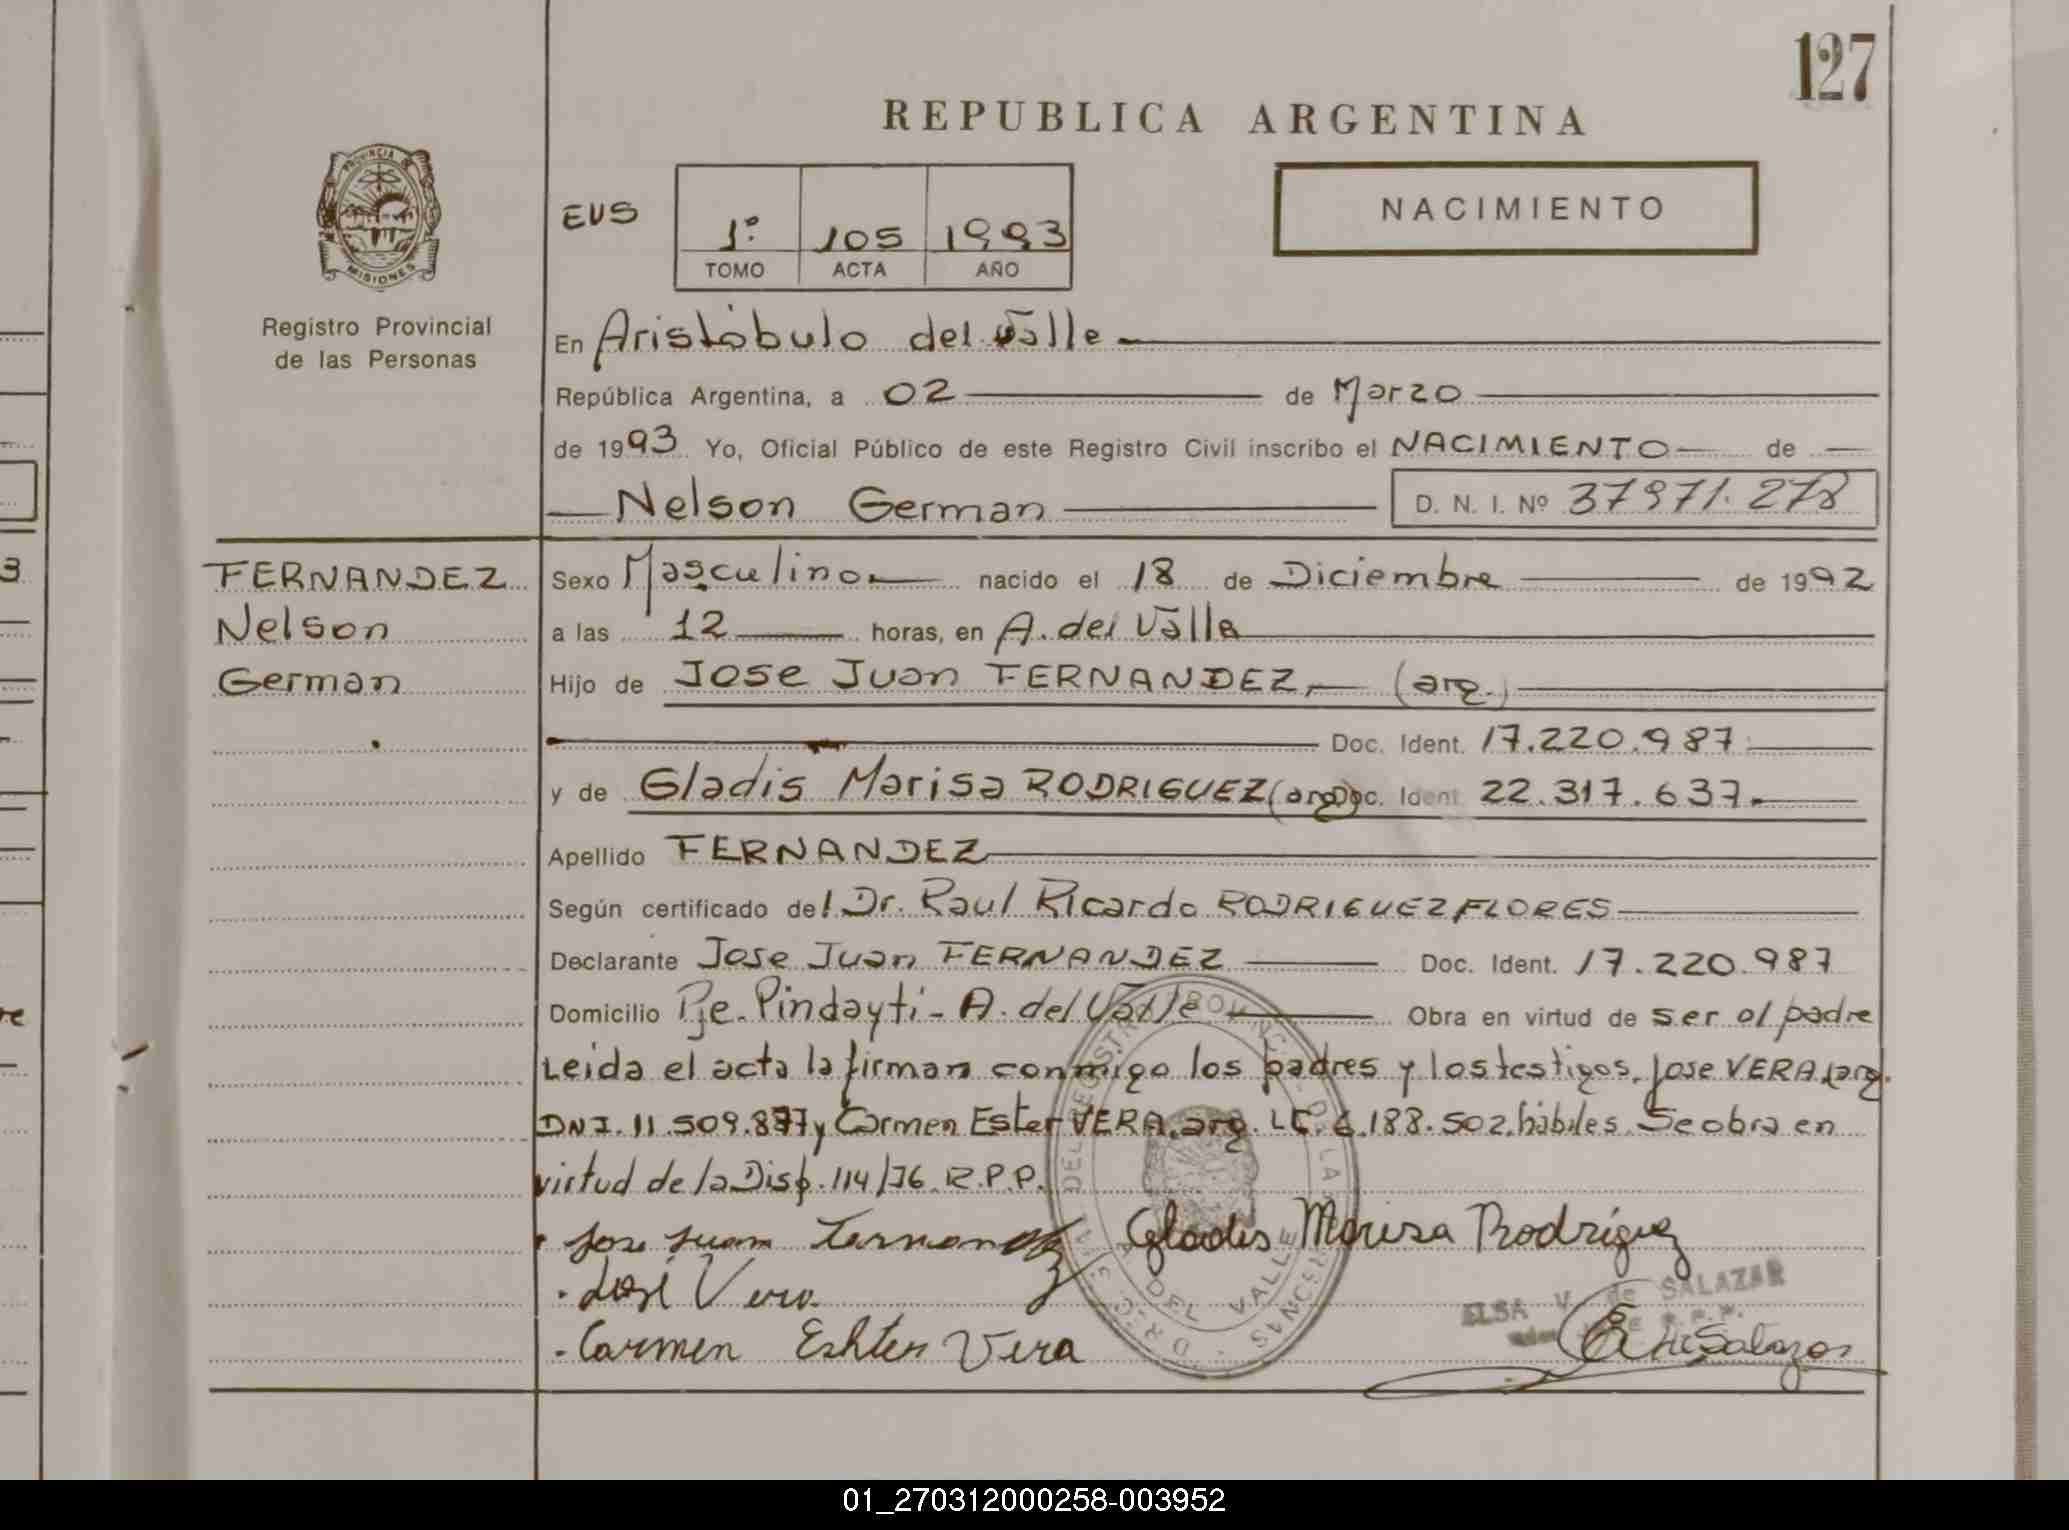 127
REPUBLICA ARGENTINA
PROVINCIA DE
MISIONES
Registro Provincial
de las Personas
EVS
1º 105 1993
TOMO ACTA AÑO
NACIMIENTO
En Aristóbulo del Valle
República Argentina, a 02 de Marzo
de 1993 Yo, Oficial Público de este Registro Civil inscribo el NACIMIENTO de
Nelson German D. N. I. Nº 37971.278
FERNANDEZ
Nelson
German
Sexo Masculino nacido el 18 de Diciembre de 1992
a las 12 horas, en A. del Valle
Hijo de Jose Juan FERNANDEZ, (arg.)
Doc. Ident. 17.220.987
y de Gladis Marisa RODRIGUEZ (arg) Doc. Ident 22.317.637.
Apellido FERNANDEZ
Según certificado del Dr. Raul Ricardo RODRIGUEZ FLORES
Declarante Jose Juan FERNANDEZ Doc. Ident. 17.220.987
Domicilio Pje. Pindayti - A. del Valle Obra en virtud de ser el padre
Leida el acta la firman conmigo los padres y los testigos, Jose VERA, arg.
DNI. 11.509.877 y Carmen Ester VERA, arg. LC. 6.188.502, habiles. Se obra en
virtud de la Disp. 114/76. R.P.P.
Jose Juan Fernandez Gladis Marisa Rodriguez
José Vera
ELSA V. de SALAZAR
Carmen Eshter Vera
DEL VALLE
01_270312000258-003952